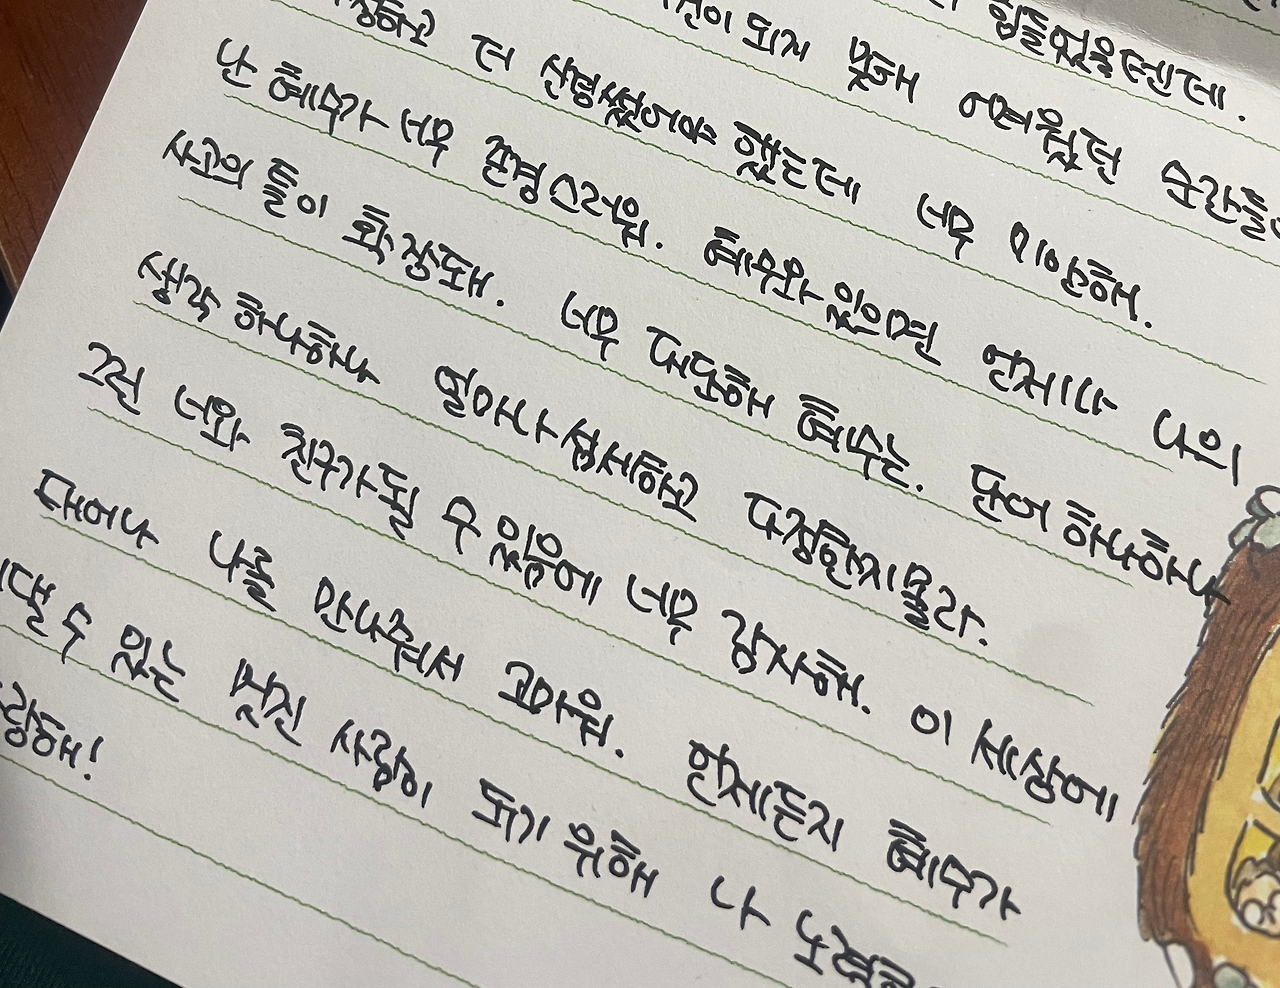 힘들었을텐데.
되지 못해 어려웠던 순간들
더 신경썼어야 했는데 너무 미안해.
난 혜수가 너무 존경스러워. 혜수와 있으면 언제나 나의
사고의 틀이 확장돼. 너무 대단해 혜수는. 단어 하나하나
생각 하나하나 얼마나 섬세하고 다정한지 몰라.
그런 너와 친구가 될 수 있음에 너무 감사해. 이 세상에
태어나 나를 만나줘서 고마워. 언제든지 혜수가
기댈 수 있는 멋진 사람이 되기 위해 나 노력
사랑해!